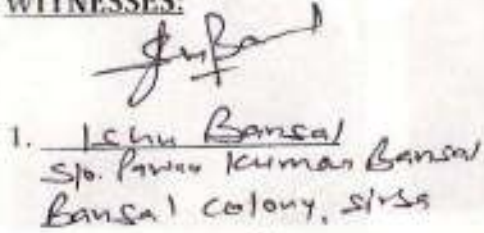 WITNESSES:
1. Ishu Bansal
S/o. Pawan Kumar Bansal
Bansal colony, sirsa